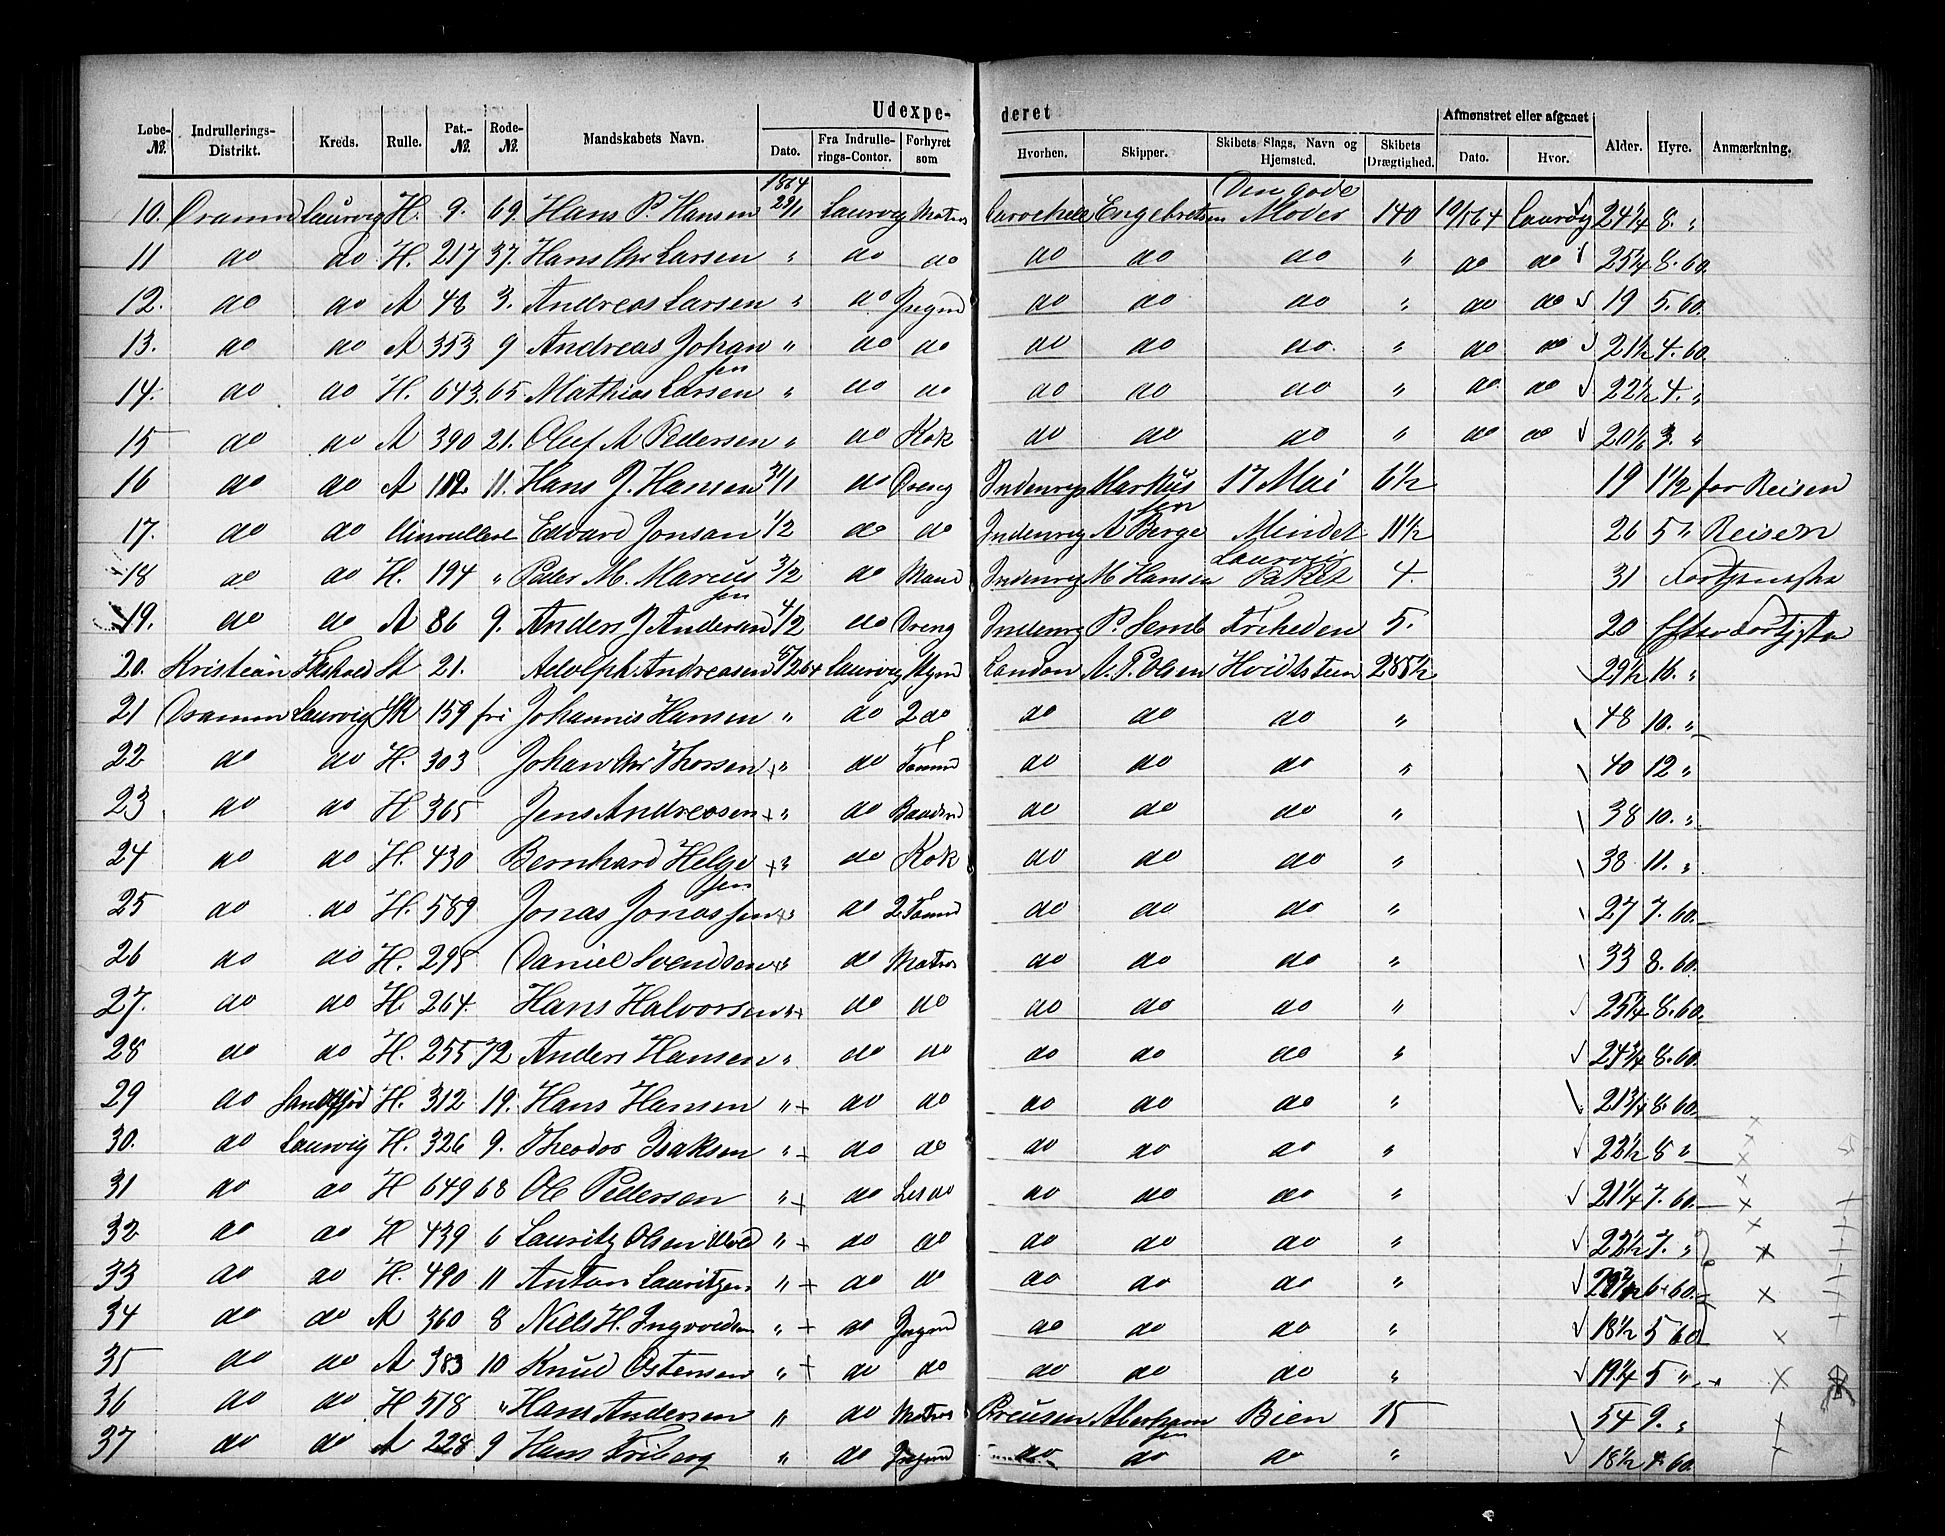 Udexpe- deret
Løbe-№. Indrullerings-Distrikt. Kreds. Rulle. Pat.-№. Rode-№. Mandskabets Navn. Dato. Fra Indrulle-rings-Contor. Forhyret som Hvorhen. Skipper. Skibets Slags, Navn og Hjemsted. Skibets Drægtighed. Afmønstret eller afgaaet Dato. Hvor. Alder. Hyre. Anmærkning.
1864
10. Dramm Laurvig H. 9. 69. Hans P. Hansen 29/1 Laurvig Matros Engebretsen Den gode Moder 140 10/5 64 Laurvig 24 1/4 8. "
11 do do H. 217 37. Hans Chr Larsen " do do do do do " do do 25 3/4 8. 60
12. do do A 48 3. Andreas Larsen " do Jngmd do do do " do do 19 5. 60
13. do do A 353 9 Andreas Johansen " do do do do do " do do 21 1/2 4. 60
14. do do H. 643. 65 Mathias Larsen " do do do do do " do do 22 1/2 4. "
15 do do A 390 21. Oluf A Pedersen " do Kok do do do " do do 20 1/2 3. "
16 do do A 112 11. Hans J. Hansen 31/1 do Dreng Indenrigs Markussen 17 Mai 6 1/2 19 1 1/2 for Reisen
17. do do Uinrullere Edvard Jonsen 1/2 do do Indenrig A Berge Mindet 11 1/2 26 5 " Reisen
18 do do H. 194 " Peder M. Marcussen 3/2 do Mand Indenrig M Hansen Laurvig Paket 4. 31 Fortjeneste
19. do do A 86 9. Anders J Andersen 4/2 do Dreng Indenrig P. Semb Friheden 5. 20 Efter Fortjgste
20. Kristian St 21. Adolph Andreasen 5/2 64 Laurvig Stymd London A. P. Olsen Hvidsteen 285 1/2 29 1/2 16. "
21 Dramm Laurvig 159 fri Johannis Hansen " do 2 do do do do " 48 10. "
22 do do H. 303 Johan Chr Thorsen + " do Tømmd do do do " 40 12 "
23 do do H 365 Jens Andreasen + " do Baadsmd do do do " 38 10. "
24 do do H. 430 Bernhard Helgesen + " do Kok do do do " 38 11. "
25 do do H. 589 Jonas Jonassen + " do 2 Tømmd do do do " 27 7. 60.
26 do do H. 295 Daniel Svendsen + " do Matros do do do " 33 8. 60.
27. do do H. 264. Hans Halvorsen " + do do do do do " 25 1/4 8. 60.
28 do do H. 255 72 Anders Hansen " do do do do do " 24 3/4 8. 60.
29 do Sandefjod H. 312 19. Hans Hansen " + do do do do do " 21 3/4 8. 60.
30. do Laurvig H. 326 9. Theodor Isaksen " + do do do do do " 22 1/2 8 "
31 do do H 649 68 Ole Pedersen " + do Let do do do do " 21 1/4 7. 60.
32 do do H 439 6 Lauritz Olsen " + do do do do do " 22 1/2 7. "
33 do do H. 490 11 Anton Lauritzen " + do do do do do " 6 60.
34 do do A 360 8 Niels H. Ingvoldsen " + do Jngmd do do do " 18 1/2 5 60
35 do do A 383 10 Knud Ostensen " + do do do do do " 19 1/4 5 "
36 do do H 578 " Hans Andersen " do Matros Preusen Aberhamsen Bien 15 54 9. "
37 do do A 228 9 Hans Friberg " do Jngmd do do do " 18 1/2 4. 60.